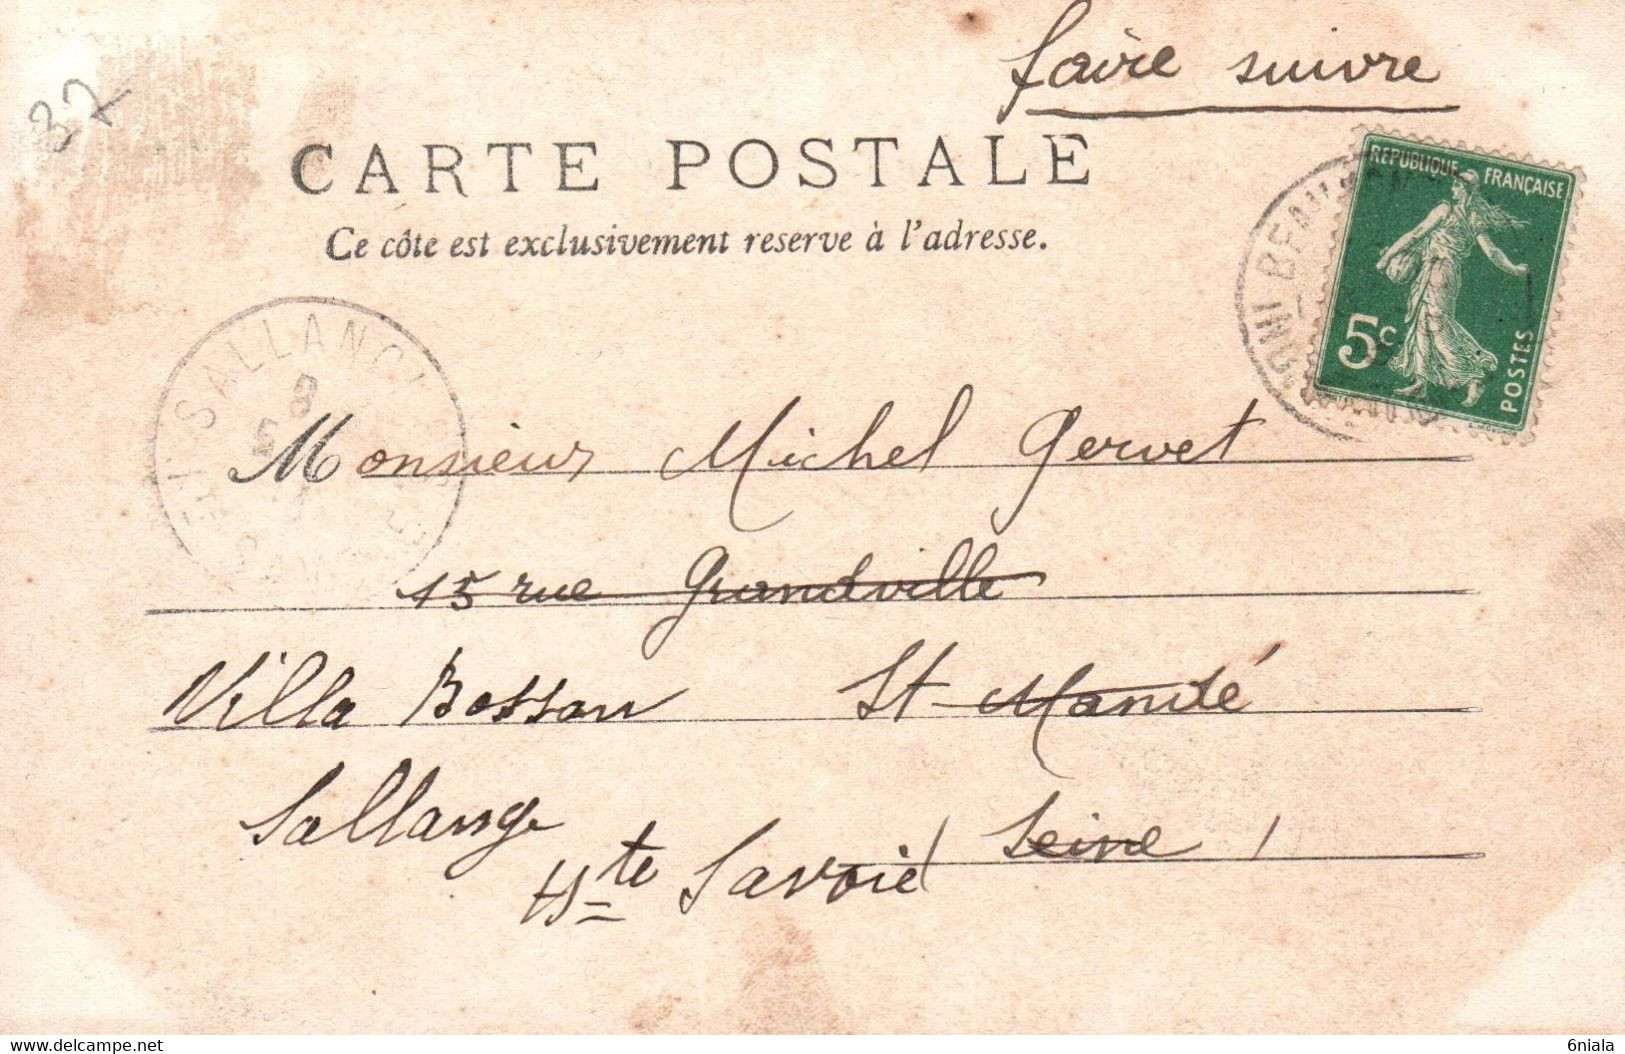 faire suivre
32
CARTE POSTALE
Ce côte est exclusivement reserve à l'adresse.
REPUBLIQUE FRANÇAISE
5c
POSTES
SALLANCHES
8
Monsieur Michel Gervet
15 rue Grandville
Villa Bossan St Mandé
Sallange Seine
Hte Savoie
www.delcampe.net
6niala